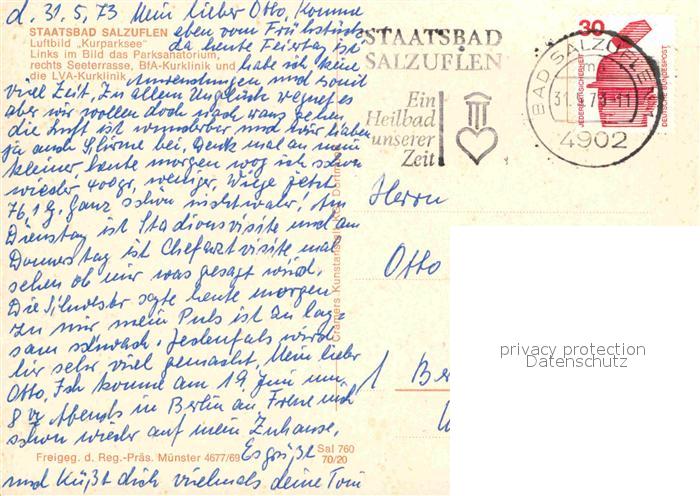 d. 31.5.73 Mein lieber Otto, Komme
STAATSBAD SALZUFLEN
eben vom Frühstück
Luftbild „Kurparksee"
da heute Feiertag ist
Links im Bild das Parksanatorium,
rechts Seeterrasse, BfA-Kurklinik und
hab ich keine
die LVA-Kurklinik
Anwendungen und somit
viel Zeit. Zu allem Unglück regnet es
aber wir wollen doch nach was gehen
die Luft ist wunderbar und wir haben
ja auch Schirme bei, Denk mal an mein
kleiner, heute morgen wog ich schon
wieder 400gr, weniger, Wiege jetzt
76,1 g. Ganz schön nicht wahr! Am
Dienstag ist Stationsvisite und am
Donnerstag ist Chefarztvisite mal
sehen ob mir was gesagt wird.
Die Schwester sagte heute morgen
zu mir mein Puls ist zu lag
sam schwach. Jedenfals wird
hir sehr viel gemacht. Mein lieber
Otto, Ich komme am 19 Juni um
8 Abends in Berlin an, Freue mich
schon wieder auf mein Zuhause.
Es grüßt
und Küßt dich vielmals deine Toni
Freigeg. d. Reg.-Präs. Münster 4677/69
Sal 760
70/20
Cramers Kunstanstalt KG, Dortmund
STAATSBAD
SALZUFLEN
Ein
Heilbad
unserer
Zeit
BAD SALZUFLEN 1
m
31.5.73-11
4902
30
JEDERZEIT SICHERHEIT
DEUTSCHE BUNDESPOST
Herrn
Otto
1 Ber
privacy protection
Datenschutz